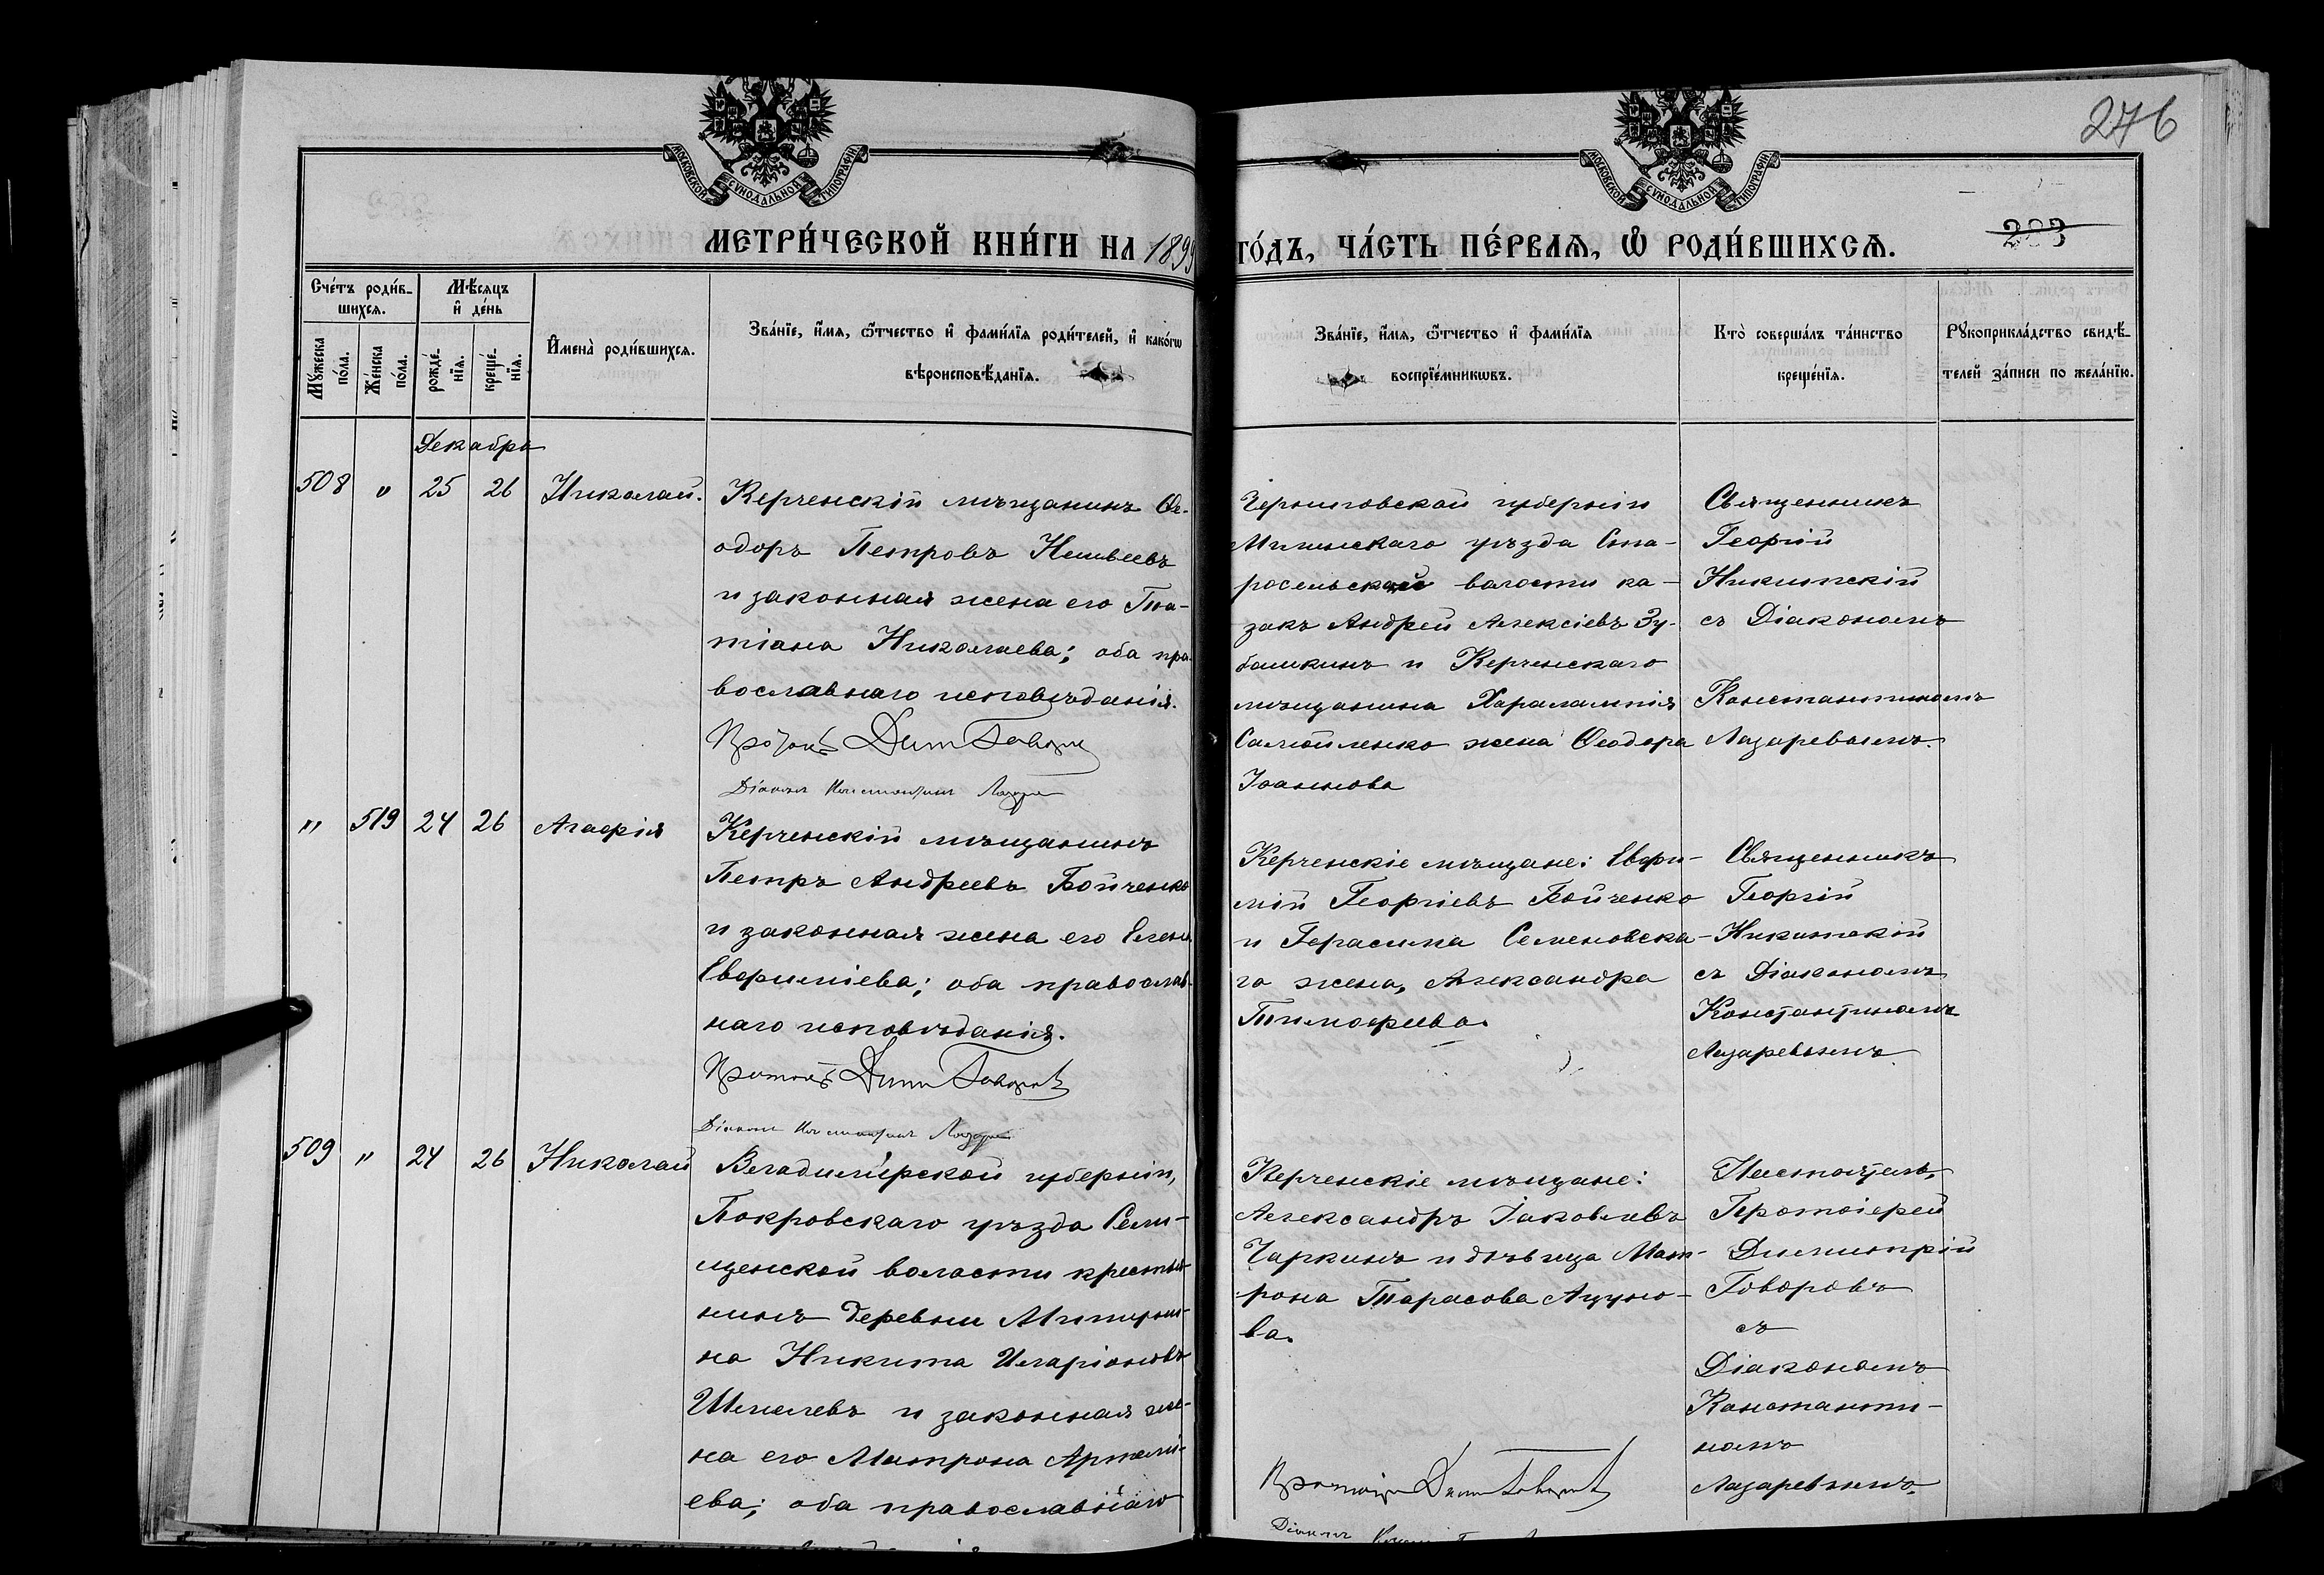 276
МОСКОВСКОЙ СУНОДАЛЬНОЙ ТИПОГРАФІИ
МОСКОВСКОЙ СУНОДАЛЬНОЙ ТИПОГРАФІИ
МЕТРИ́ЧЕСКОЙ КНИ́ГИ НА 1899
ГО́ДЪ, ЧА́СТЬ ПЕ́РВАѦ, Ѡ РОДИ́ВШИХСѦ.
283
Сче́тъ роди́в-
шихсѧ.
Мꙋ́жеска
по́ла.
Же́нска
по́ла.
Мѣ́сѧцъ
и҆ де́нь
рожде́-
нїѧ.
креще́-
нїѧ.
И҆мена̀ роди́вшихсѧ.
Зва́нїе, и҆́мѧ, ѻ҆́тчество и҆ фами́лїѧ роди́телей, и҆ како́гѡ
вѣроисповѣ́данїѧ.
Зва́нїе, и҆́мѧ, ѻ҆́тчество и҆ фами́лїѧ
воспрїе́мникѡвъ.
Кто̀ соверша́лъ та́инство
креще́нїѧ.
Рꙋкоприкла́дство свидѣ́-
телей за́писи по жела́нїю.
Декабрь
508 " 25 26 Николай.
Керченскій мѣщанинъ Ѳе-
одоръ Петровъ
и законная жена его Та-
тіана Николаева; оба пра-
вославнаго исповѣданія.
Діаконъ Константинъ Лазаревъ
Черниговской губерніи
уѣзда Ста-
росельской волости ка-
закъ Андрей Алексіевъ Зу-
башкинъ и Керченскаго
мѣщанина Харалампія
Самойленко жена Ѳеодора
Іоаннова
Священникъ
Георгій
Никитскій
съ Діакономъ
Константиномъ
Лазаревымъ.
" 519 24 26 Агафія
Керченскій мѣщанинъ
Петръ Андреевъ Бойченко
и законная жена его Елена
Евфиміева; оба православ-
наго исповѣданія.
Діаконъ Константинъ Лазаревъ
Керченскіе мѣщане: Евфи-
мій Георгіевъ Бойченко
и Герасима Семеновска-
го жена, Александра
Тимофеева.
Священникъ
Георгій
Никитскій
съ Діакономъ
Константиномъ
Лазаревымъ.
509 " 24 26 Николай
Владимірской губерніи,
Покровскаго уѣзда Сели-
щенской волости крестья-
нинъ деревни
на Никита Иларіоновъ
Шмелевъ и законная же-
на его Матрона Артемі-
ева; оба православнаго
Керченскіе мѣщане:
Александръ Іаковлевъ
Чаркинъ и дѣвица Мат-
рона Тарасова
ва.
Діаконъ
Настоятель,
Протоіерей
Димитрій
Говоровъ
съ
Діакономъ
Константи-
номъ
Лазаревымъ.